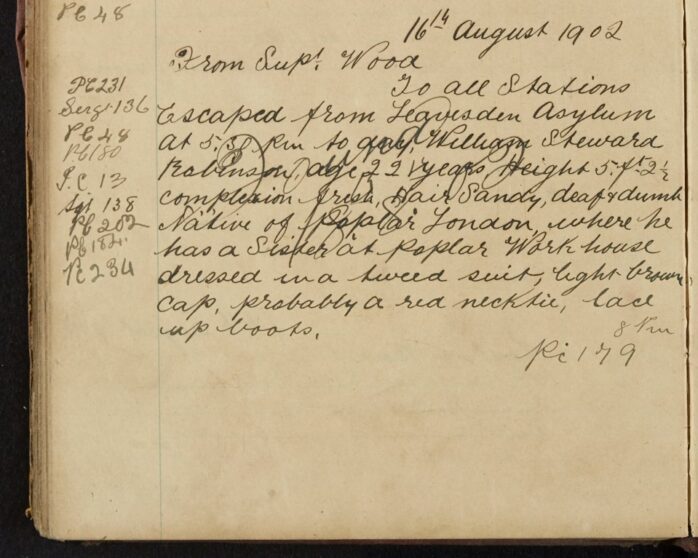 PC 48
16th August 1902
From Supt. Wood
To all Stations
PC 231
Sergt 136
PC 48
PC 180
P.C. 13
Sgt 138
PC 202
PC 182
PC 234
Escaped from Leavesden Asylum
at 5.30 pm to day, William Steward
Robinson, age 22 years, Height 5.ft 2½
complexion fresh, Hair Sandy, deaf & dumb
Native of Poplar London where he
has a Sister at Poplar Work house
dressed in a tweed suit, light brown
cap, probably a red necktie, lace
up boots.
8 Pm
Pc 179